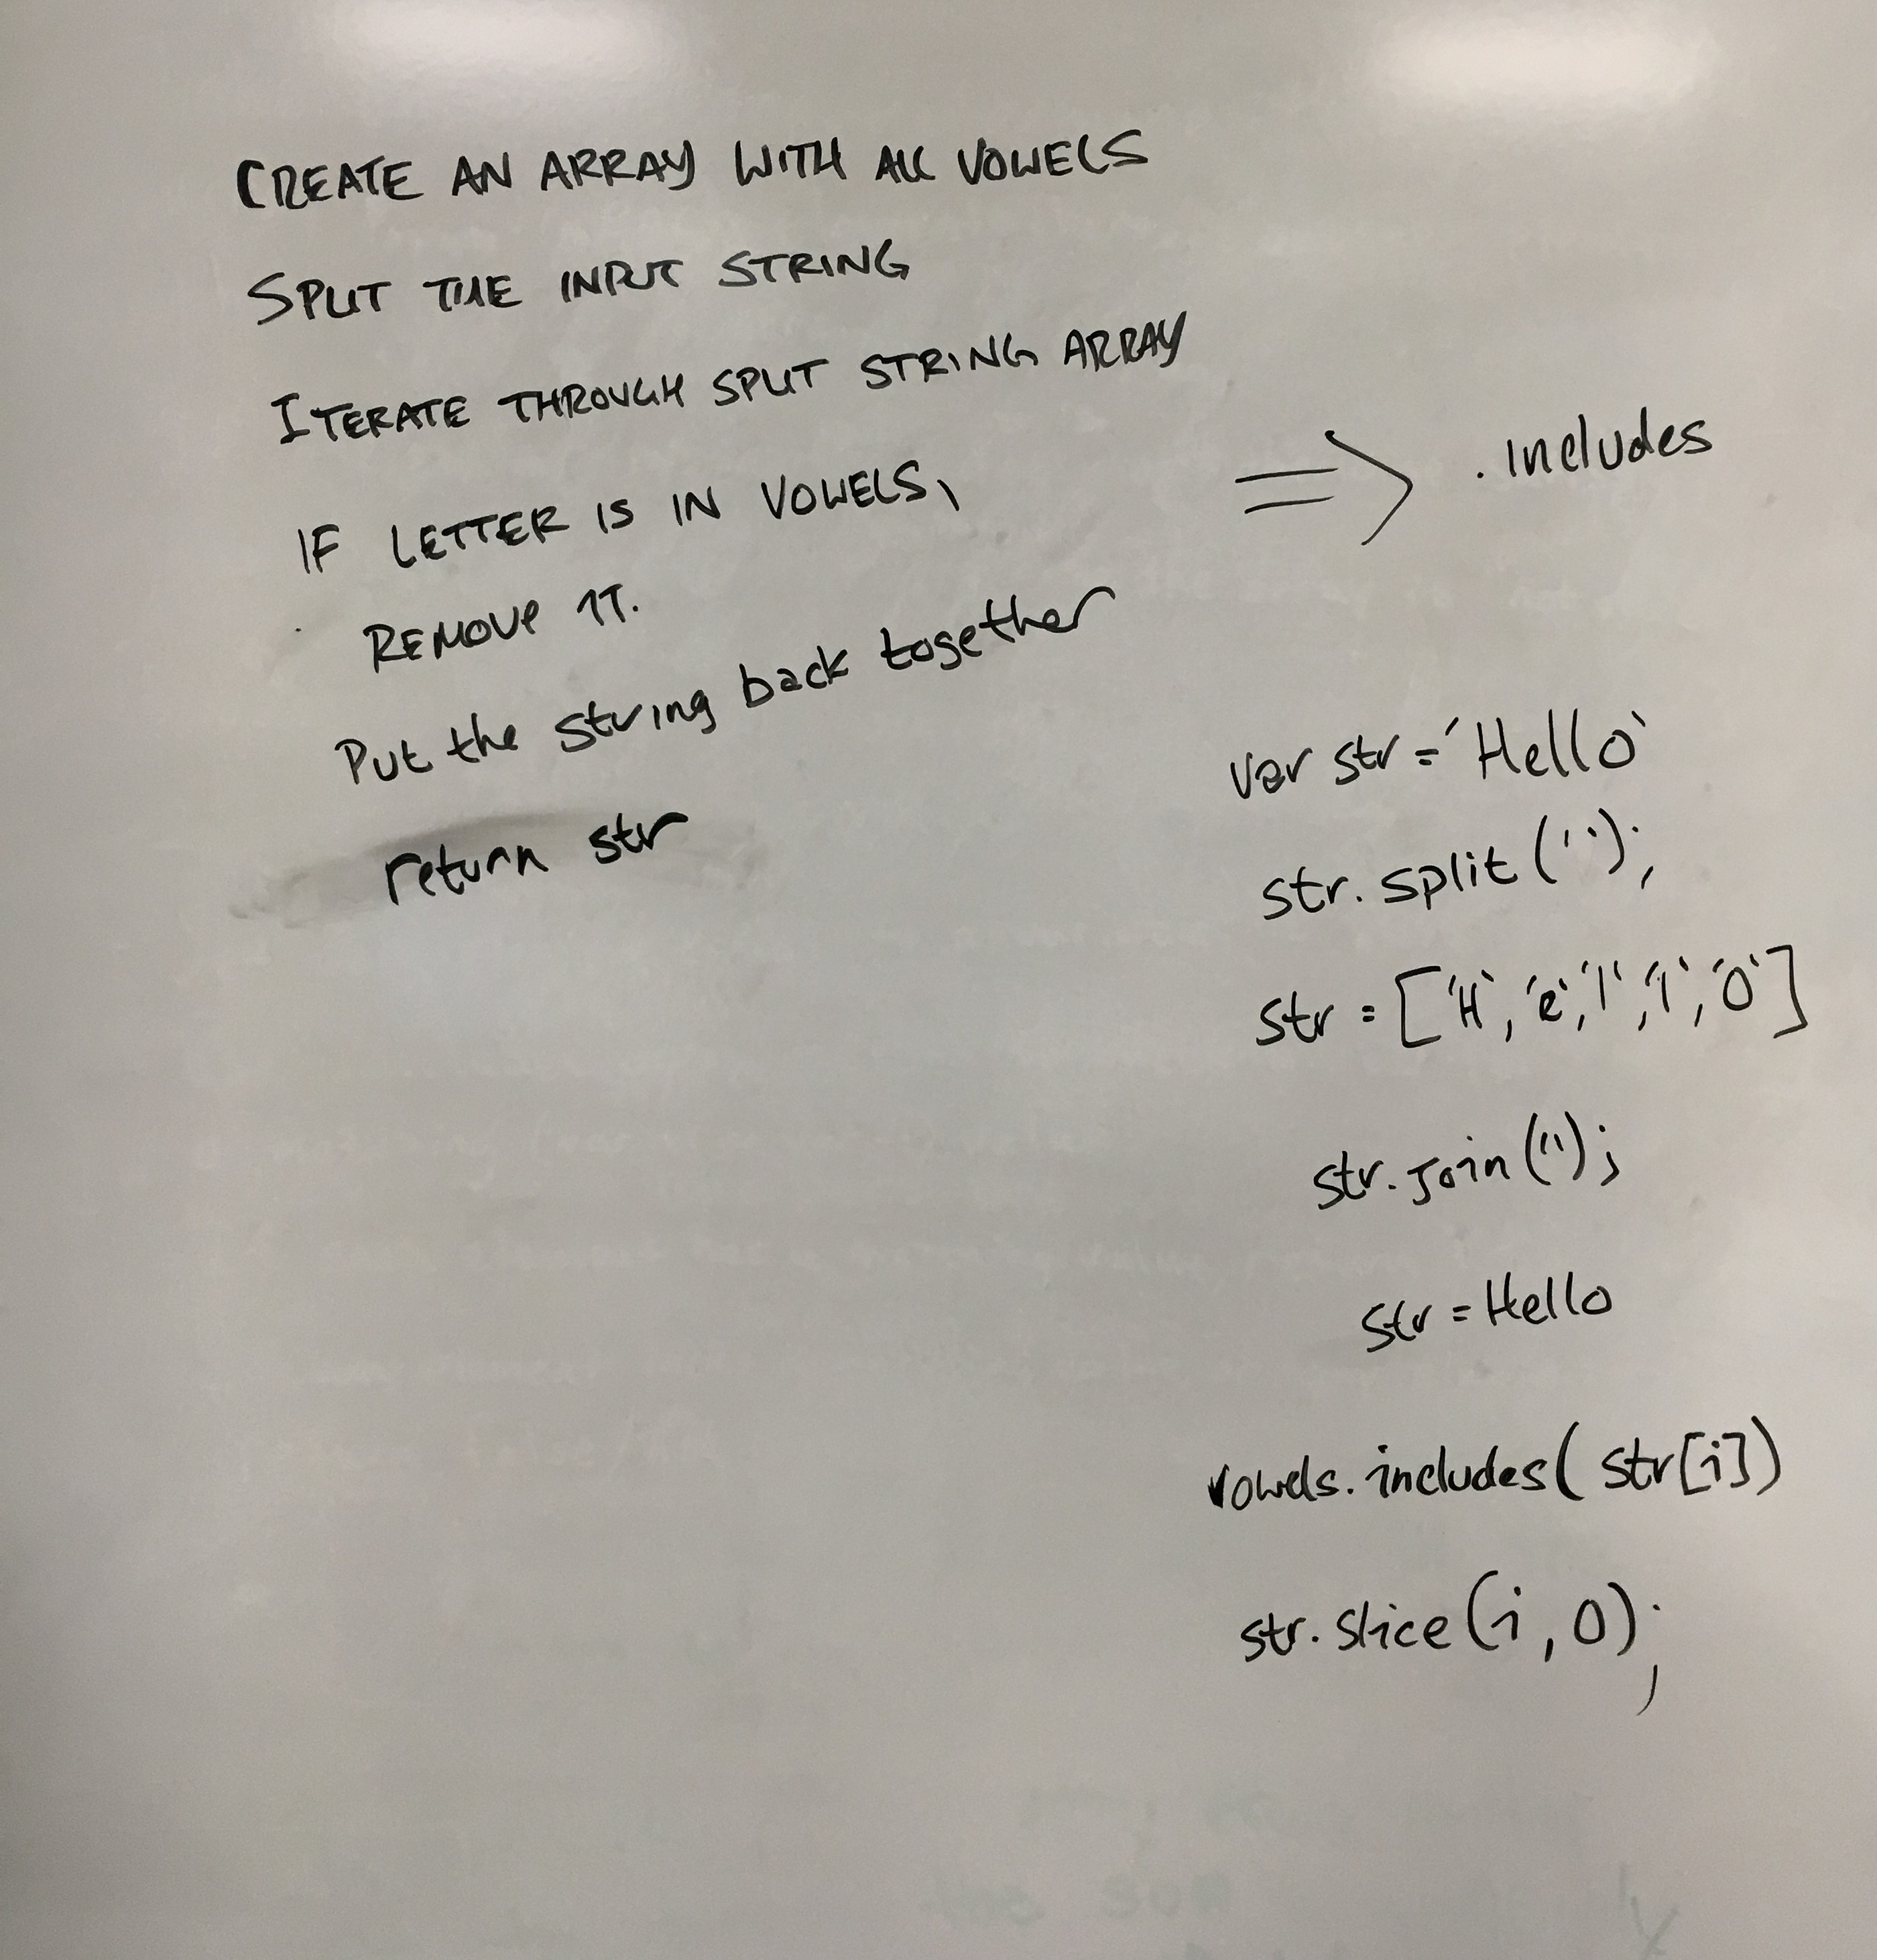 CREATE AN ARRAY WITH ALL VOWELS
SPLIT THE INPUT STRING
ITERATE THROUGH SPLIT STRING ARRAY
IF LETTER IS IN VOWELS,
REMOVE IT.
Put the string back together
return str
=> .includes
var str = 'Hello'
str.split('');
str = ['H', 'e', 'l', 'l', 'o']
str.join('');
str = Hello
vowels.includes(str[i])
str.slice(i, 0);